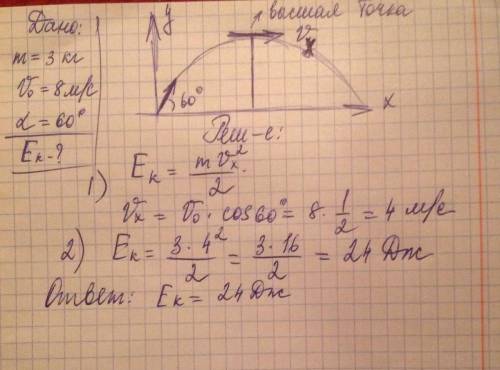 Дано:
m = 3 кг
v₀ = 8 м/с
α = 60°
Eк - ?
y
высшая точка
v
60°
x
Реш-е:
1) Eк = mvₓ²/2.
vₓ = v₀ · cos60° = 8 · 1/2 = 4 м/с
2) Eк = 3 · 4²/2 = 3 · 16/2 = 24 Дж
Ответ: Eк = 24 Дж